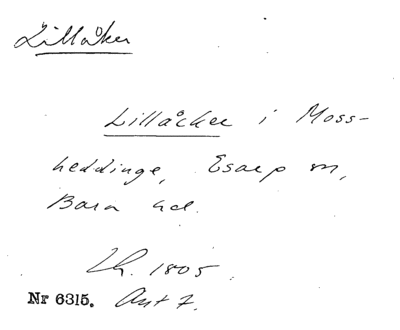 Lillåker
Lillåcker i Moss-
heddinge, Esarp sn,
Bara hd.
Lh. 1805.
Nr 6315. Akt 7.